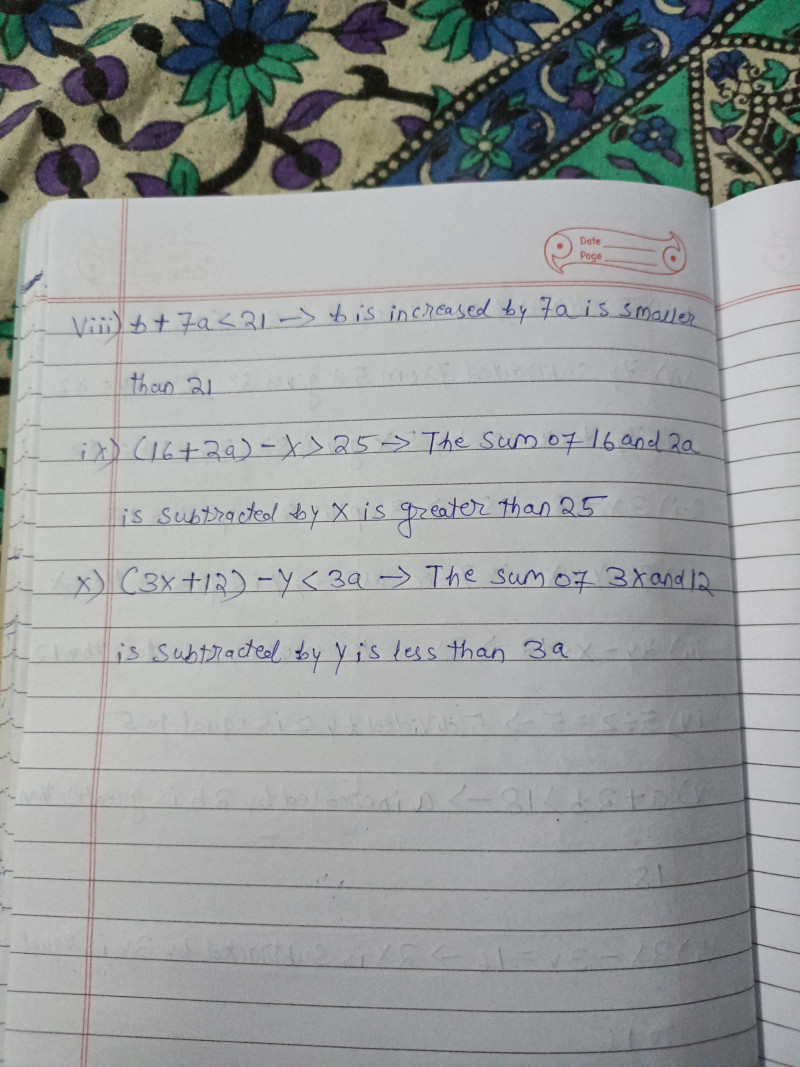 Date
Page
viii) b + 7a < 21 → b is increased by 7a is smaller
than 21
ix) (16 + 2a) - x > 25 → The sum of 16 and 2a
is subtracted by x is greater than 25
x) (3x + 12) - y < 3a → The sum of 3x and 12
is subtracted by y is less than 3a